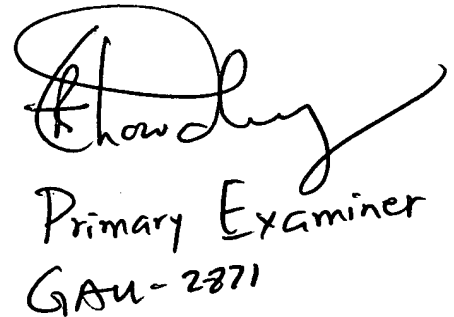 Chowdhury
Primary Examiner
GAU-2871